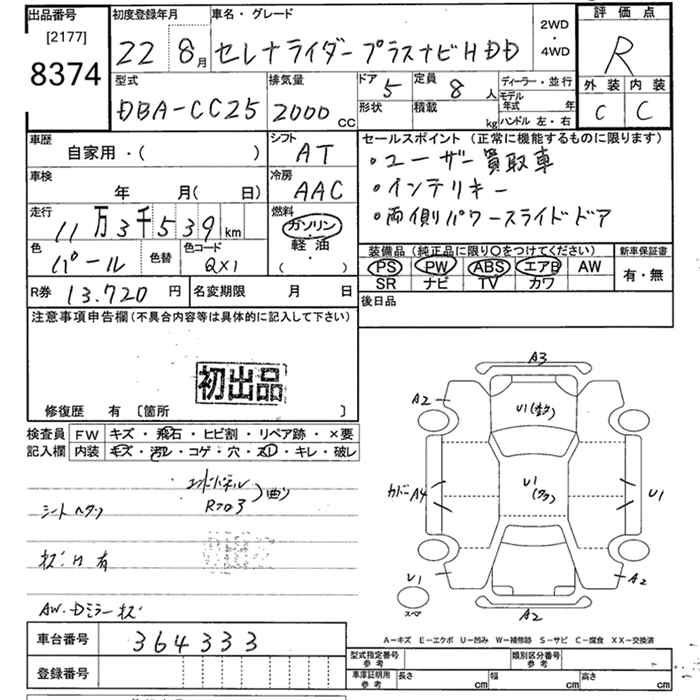 出品番号
[2177]
8374
初度登録年月
22 8月
車名・グレード
セレナライダープラスナビHDD
2WD
・
4WD
評価点
R
外装 内装
C C
型式
DBA-CC25
排気量
2000 CC
ドア 5
定員 8人
形状
積載 kg
ディーラー・並行
モデル年式 年
ハンドル 左・右
車歴
自家用・( )
シフト
AT
車検
年 月( 日)
冷房
AAC
走行
11万3千539km
燃料
ガソリン・
軽油・
( )
色
パール
色替
色コード
QX1
R券 13.720円
名変期限 月 日
セールスポイント(正常に機能するものに限ります)
・ユーザー買取車
・インテリキー
・両側パワースライドドア
装備品(純正品に限り○をつけてください)
PS PW ABS エアB AW
SR ナビ TV カワ
新車保証書
有・無
後日品
注意事項申告欄(不具合内容等は具体的に記入して下さい)
初出品
修復歴 有 [箇所 ]
検査員
記入欄
FW キズ・飛石・ヒビ割・リペア跡・×要
内装 キズ・汚レ・コゲ・穴・スレ・キレ・破レ
曲り
有
AW・Dミラーキズ
車台番号 364333
登録番号
A3
A2
U1
U1
カバーA4
U1
U1
スペア
A2
A2
A-キズ E-エクボ U-凹み W-補修跡 S-サビ C-腐食 XX-交換済
型式指定番号
参考
類別区分番号
参考
車庫証明用
参考
長さ cm
幅 cm
高さ cm